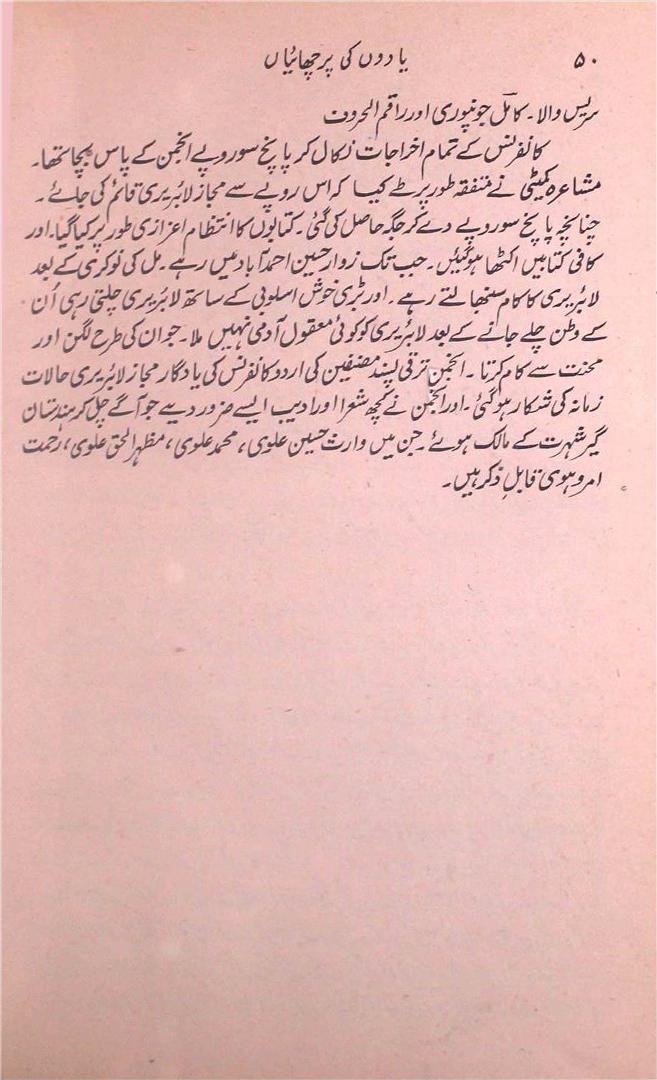 ۵۰ یادوں کی پرچھائیاں
سریس والا۔ کامل جونپوری اور راقم الحروف
کانفرنس کے تمام اخراجات نکال کر پانچ سو روپے انجمن کے پاس بچا تھا۔
مشاعرہ کمیٹی نے متفقہ طور پر طے کیا کہ اس روپے سے مجاز لائبریری قائم کی جائے۔
چنانچہ پانچ سو روپے دے کر جگہ حاصل کی گئی۔ کتابوں کا انتظام اعزازی طور پر کیا گیا۔ اور
کافی کتابیں اکٹھا ہو گئیں۔ جب تک زوار حسین احمد آباد میں رہے۔ مل کی نوکری کے بعد
لائبریری کا کام سنبھالتے رہے۔ اور بڑی خوش اسلوبی کے ساتھ لائبریری چلتی رہی اُن
کے وطن چلے جانے کے بعد لائبریری کو کوئی معقول آدمی نہیں ملا۔ جو ان کی طرح لگن اور
محنت سے کام کرتا۔ انجمن ترقی پسند مصنفین کی اردو کانفرنس کی یادگار مجاز لائبریری حالات
زمانہ کی شکار ہو گئی۔ اور انجمن نے کچھ شعرا اور ادیب ایسے ضرور دیے جو آگے چل کر ہندستان
گیر شہرت کے مالک ہوئے۔ جن میں وارث حسین علوی، محمد علوی، مظہر الحق علوی، رحمت
امروہوی قابلِ ذکر ہیں۔